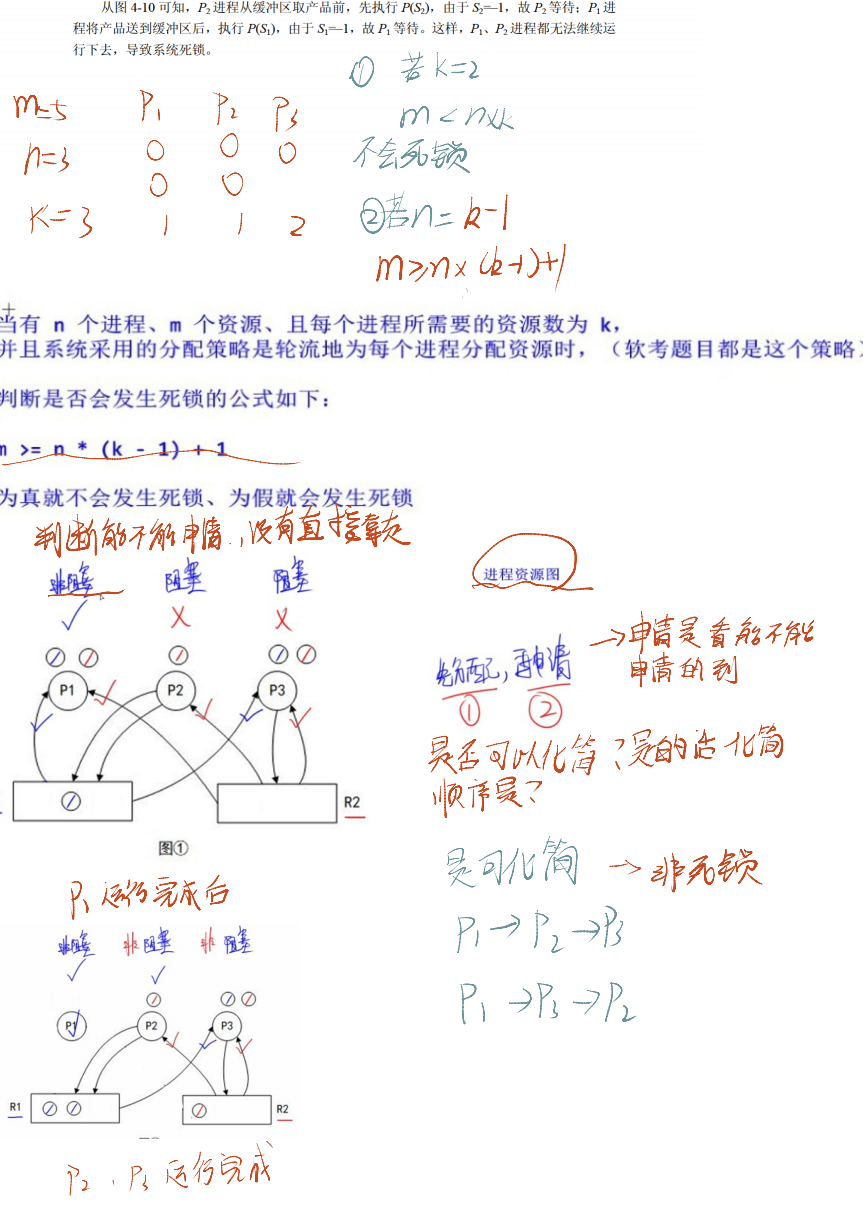 从图 4-10 可知，P2 进程从缓冲区取产品前，先执行 P(S2)，由于 S2=–1，故 P2 等待；P1 进
程将产品送到缓冲区后，执行 P(S1)，由于 S1=–1，故 P1 等待。这样，P1、P2 进程都无法继续运
行下去，导致系统死锁。
① 若 K=2
m=5 P1 P2 P3
m < n×k
n=3 0 0 0
不会死锁
0 0
K=3 1 1 2
②若n= k-1
m≥n×(k-1)+1
当有 n 个进程、m 个资源、且每个进程所需要的资源数为 k，
并且系统采用的分配策略是轮流地为每个进程分配资源时，（软考题目都是这个策略）
判断是否会发生死锁的公式如下：
m >= n * (k - 1) + 1
为真就不会发生死锁、为假就会发生死锁
判断能不能申请，没有直接拿走
非阻塞 阻塞 阻塞
进程资源图
✓ X X
→申请是看能不能
申请的到
先分配，再申请
① ②
P1 P2 P3
是否可以化简？是的话化简
顺序是？
R2
图①
是可化简 → 非死锁
P1 运行完成后
P1→P2→P3
非阻塞 非阻塞 非阻塞
P1→P3→P2
P1 P2 P3
R1 R2
P2、P3 运行完成